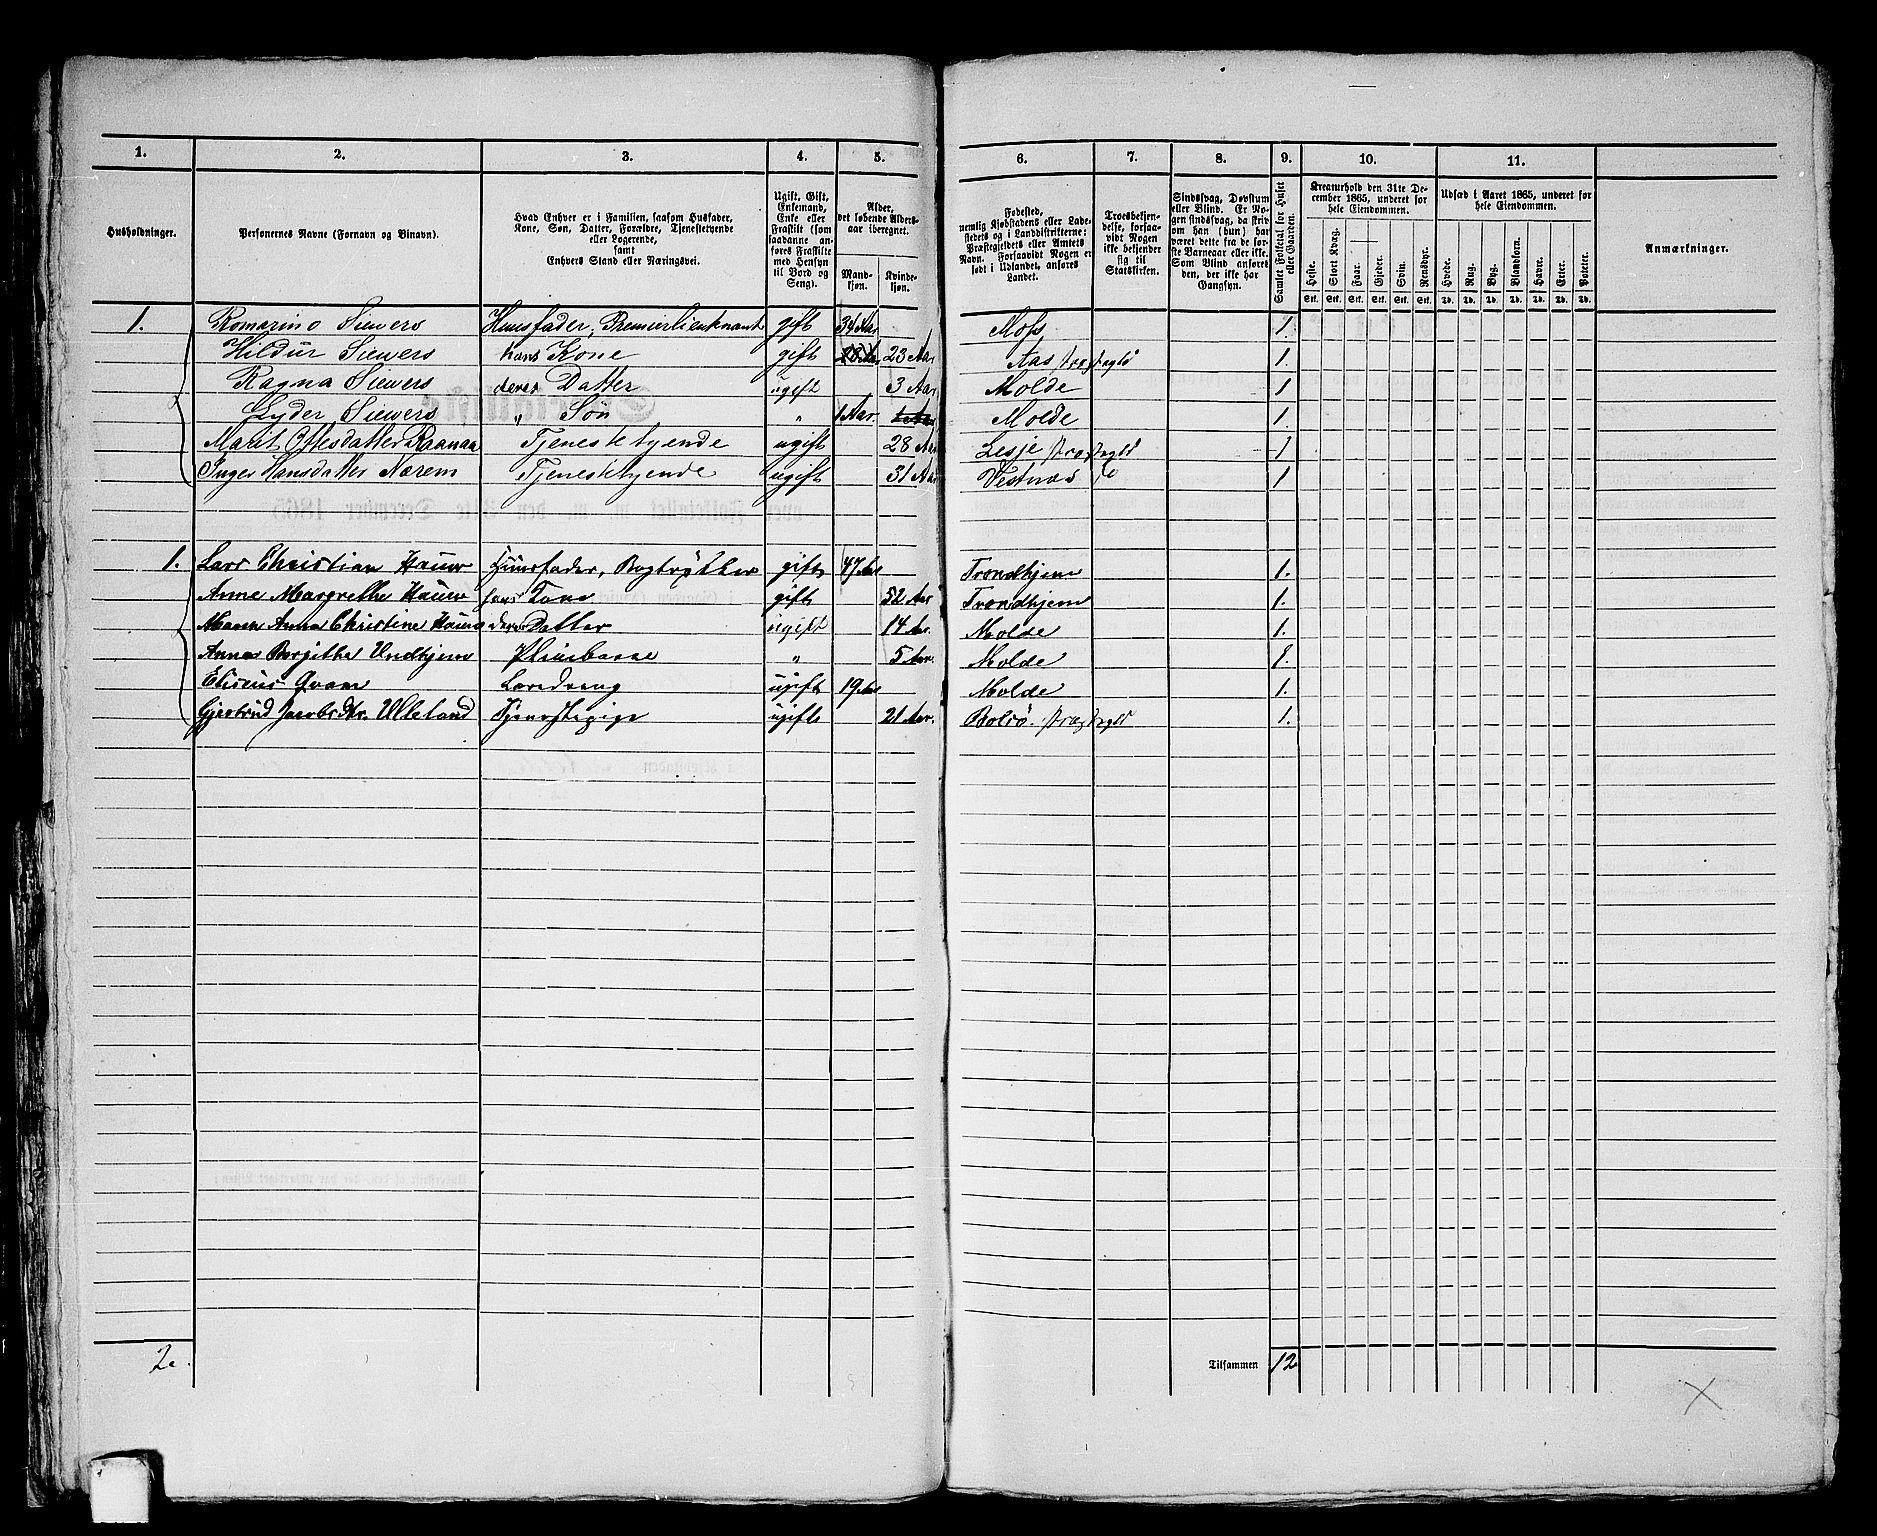 1. 2. 3. 4. 5. 6. 7. 8. 9. 10. 11.
Husholdninger.
Personernes Navne (Fornavn og Binavn).
Hvad Enhver er i Familien, saasom Husfader,
Kone, Søn, Datter, Forældre, Tjenestetyende
eller Logerende,
samt
Enhvers Stand eller Næringsvei.
Ugift, Gift,
Enkemand,
Enke eller
Fraskilt (som
saadanne an-
føres Fraskilte
med Hensyn
til Bord og
Seng).
Alder,
det løbende Alders-
aar iberegnet.
Mand-
kjøn.
Kvinde-
kjøn.
Fødested,
nemlig Kjøbstadens eller Lade-
stedets og i Landdistrikterne:
Præstegjeldets eller Amtets
Navn. Forsaavidt Nogen er
født i Udlandet, anføres
Landet.
Troesbekjen-
delse, forsaa-
vidt Nogen
ikke bekjender
sig til
Statskirken.
Sindssvag, Døvstum
eller Blind. Er No-
gen sindssvag, da skriv
om han (hun) har
været dette fra de før-
ste Barneaar eller ikke.
Som Blind anføres
den, der ikke har
Gangsyn.
Samlet Folketal for Huset
eller Gaarden.
Kreaturhold den 31te De-
cember 1865, underet for
hele Eiendommen.
Heste. Stort Kvæg. Faar. Gjeder. Svin. Rensdyr.
Stk. Stk. Stk. Stk. Stk. Stk.
Udsæd i Aaret 1865, underet for
hele Eiendommen.
Hvede. Rug. Byg. Blandkorn. Havre. Erter. Poteter.
Td. Td. Td. Td. Td. Td. Td.
Anmærkninger.
1. Romarino Siewers Huusfader, Premierlieutnant gift 34 Aar Moss 1.
Hildur Siewers hans Kone gift 23 Aar Aas Præstegjld 1.
Ragna Siewers deres Datter ugift 3 Aar Molde 1
Lyder Siewers " Søn " 1 Aar. Molde 1.
Marit Ottesdatter Raanaa Tjenestetyende ugift 28 Aar Lesje Præstegjld 1
Inger Hansdatter Nærem Tjenestetyende ugift 31 Aar Vestnæs 1
1. Lars Christian Hauw Huusfader, Bogtrykker gift 47 Aar Trondhjem 1.
Anne Margrethe Hauw hans Kone gift 52 Aar Trondhjem 1.
Maren Anna Christine Hauw deres Datter ugift 14 Aar. Molde 1.
Anna Birgitha Undhjem Pleiebarn " 5 Aar. Molde 1.
Eliseus Qvam Læredreng ugift 19 Aar Molde 1.
Gjertrud Jacobsdtr. Ulleland Tjenestepige ugift 21 Aar. Bolsø Præstegjld 1.
2.
Tilsammen 12